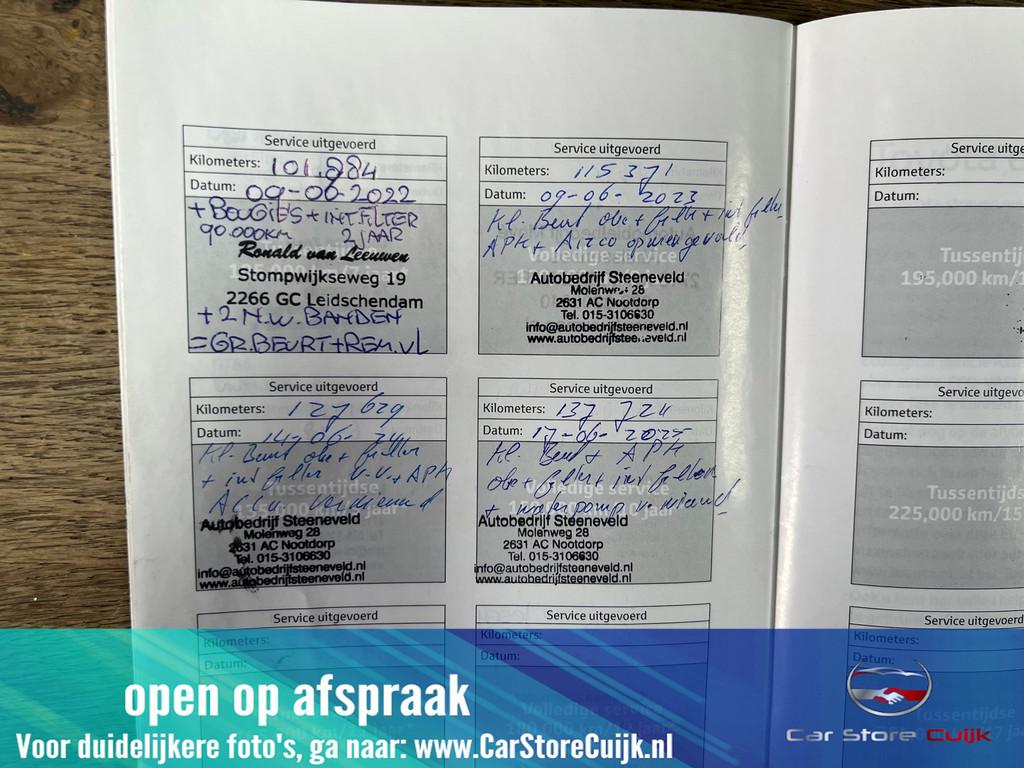 Service uitgevoerd
Kilometers: 101.884
Datum: 09-06-2022
+ BOUGIES + INT FILTER
90.000KM 2 JAAR
Ronald van Leeuwen
Stompwijkseweg 19
2266 GC Leidschendam
+ 2 N.W. BANDEN
= GR.BEURT + REM.VL
Service uitgevoerd
Kilometers: 115371
Datum: 09-06-2023
Kl. Beurt olie + filter + int filter
APK + Airco opnieuw gevuld
Volledige service
Autobedrijf Steeneveld
Molenweg 28
2631 AC Nootdorp
Tel. 015-3106630
info@autobedrijfsteeneveld.nl
www.autobedrijfsteeneveld.nl
Service uitgevoerd
Kilometers: 127629
Datum: 14-06-24
Kl. Beurt olie + filter
+ int filter V.V. + APK
Accu vernieuwd
Tussentijdse
Autobedrijf Steeneveld
Molenweg 28
2631 AC Nootdorp
Tel. 015-3106630
info@autobedrijfsteeneveld.nl
www.autobedrijfsteeneveld.nl
Service uitgevoerd
Kilometers: 137724
Datum: 17-06-2025
Kl. Beurt + APK
olie + filter + int filter
+ waterpomp vernieuwd
Volledige service
Autobedrijf Steeneveld
Molenweg 28
2631 AC Nootdorp
Tel. 015-3106630
info@autobedrijfsteeneveld.nl
www.autobedrijfsteeneveld.nl
Service uitgevoerd
Kilometers:
Datum:
Service uitgevoerd
Kilometers:
Datum:
Volledige service
Service uitge
Kilometers:
Datum:
Tussentijd
195,000 km/1
Service uitgev
Kilometers:
Datum:
Tussentijds
225,000 km/15
Service uitgevoerd
Kilometers:
Datum:
Tussentijdse
open op afspraak
Voor duidelijkere foto's, ga naar: www.CarStoreCuijk.nl
Car Store Cuijk